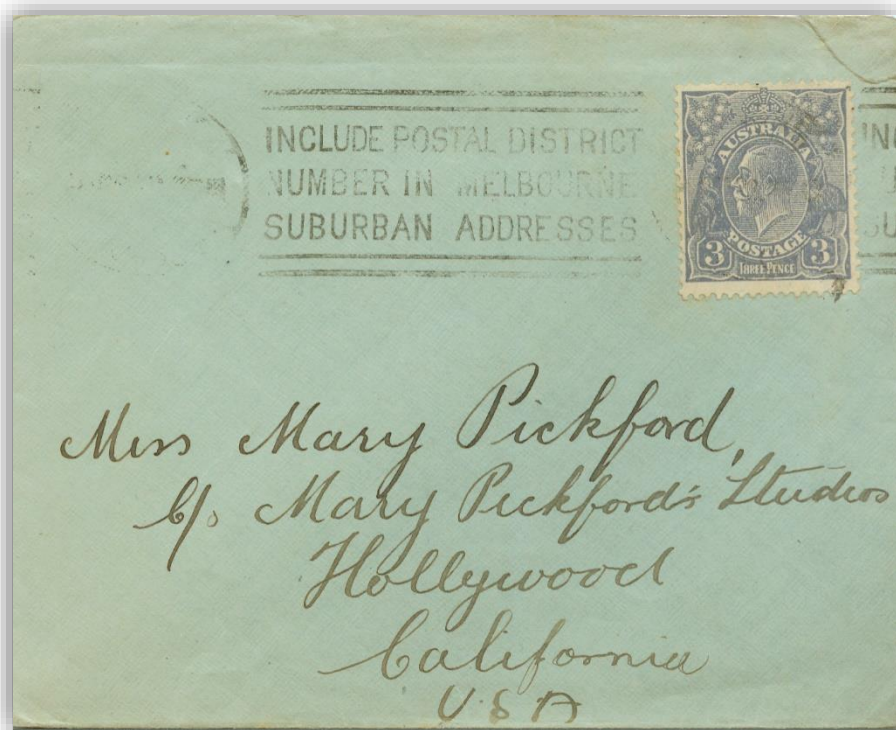 INCLUDE POSTAL DISTRICT
NUMBER IN MELBOURNE
SUBURBAN ADDRESSES
AUSTRALIA
POSTAGE
3 THREE PENCE 3
INC
SU
Miss Mary Pickford,
C/o Mary Pickford's Studios
Hollywood
California
U.S.A